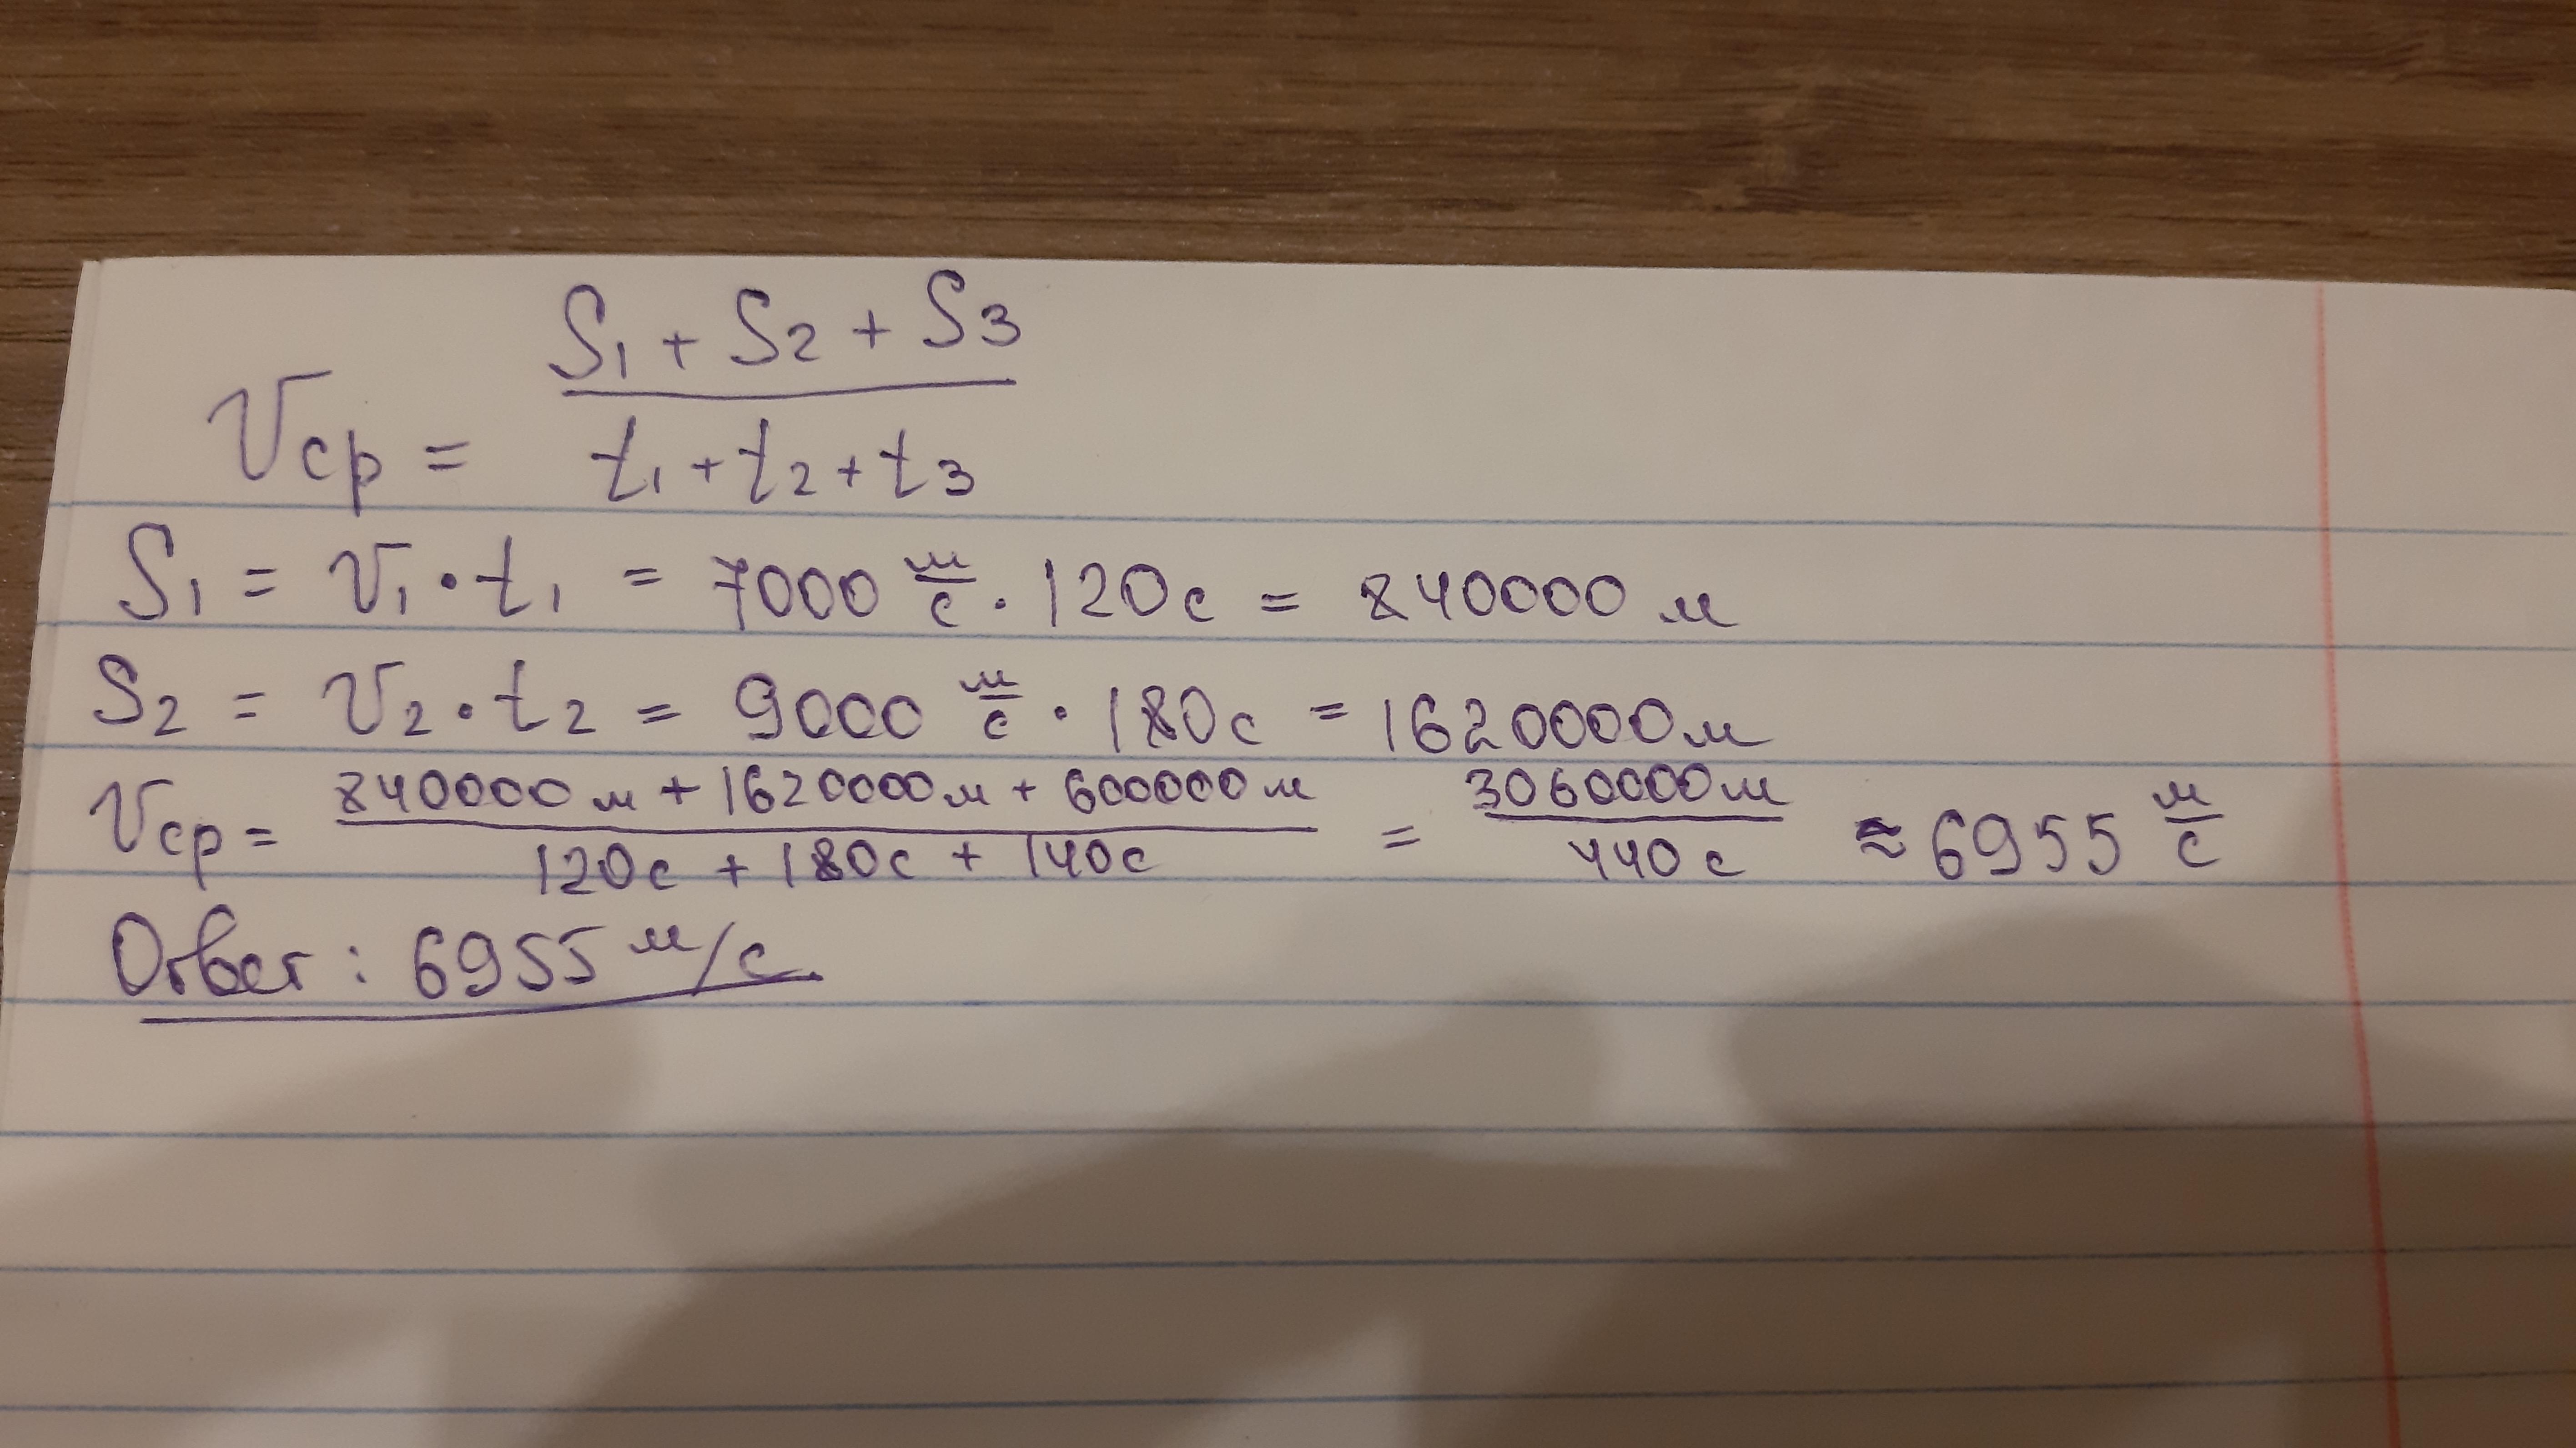 S1 + S2 + S3
Vср = t1 + t2 + t3
S1 = V1 · t1 = 7000 м/с · 120с = 840000 м
S2 = V2 · t2 = 9000 м/с · 180с = 1620000м
Vср = 840000м + 1620000м + 600000м / 120с + 180с + 140с = 3060000м / 440с ≈ 6955 м/с
Ответ : 6955 м/с.